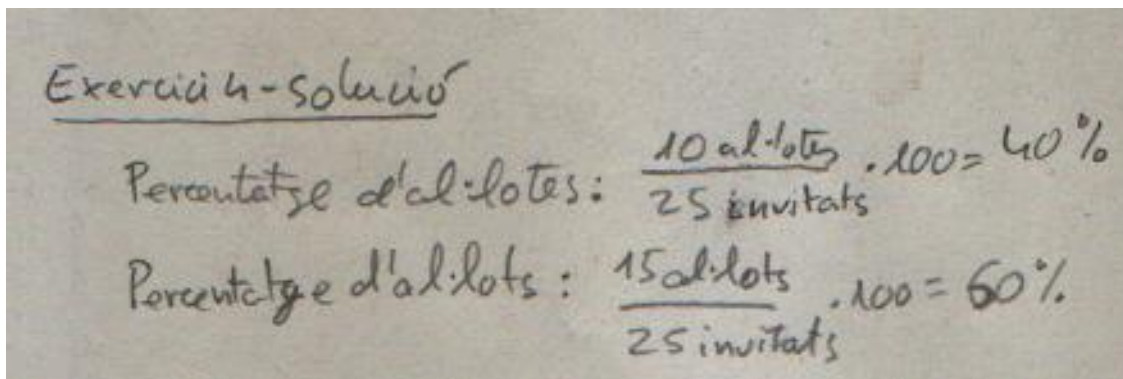 Exercici 4-solució
Percentatge d'al·lotes: 10 al·lotes / 25 invitats · 100 = 40%
Percentatge d'al·lots: 15 al·lots / 25 invitats · 100 = 60%